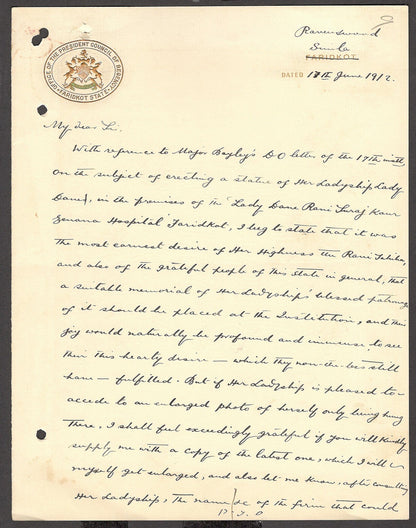 OFFICE OF THE PRESIDENT COUNCIL OF REGENCY
FARIDKOT STATE
Ravenswood
Simla
FARIDKOT.
DATED 17th June 1912.
My dear Sir,
With reference to Major Bayley's D.O letter of the 17th
on the subject of erecting a statue of Her Ladyship Lady
Dane, in the premises of the Lady Dane Rani Suraj Kaur
Zenana Hospital Faridkot, I beg to state that it was
the most earnest desire of Her Highness the Rani Sahiba
and also of the grateful people of this State in general, that
a suitable memorial of Her Ladyship's blessed patronage
of it should be placed at the Institution, and their
joy would naturally be profound and immense, to see
their this hearty desire — which they none-the-less still
have — fulfilled. But if Her Ladyship is pleased to
accede to an enlarged photo of herself only being hung
there, I shall feel exceedingly grateful if you will kindly
supply me with a copy of the latest one, which I will
myself get enlarged, and also let me know, after consulting
Her Ladyship, the name of the firm that could
P.T.O